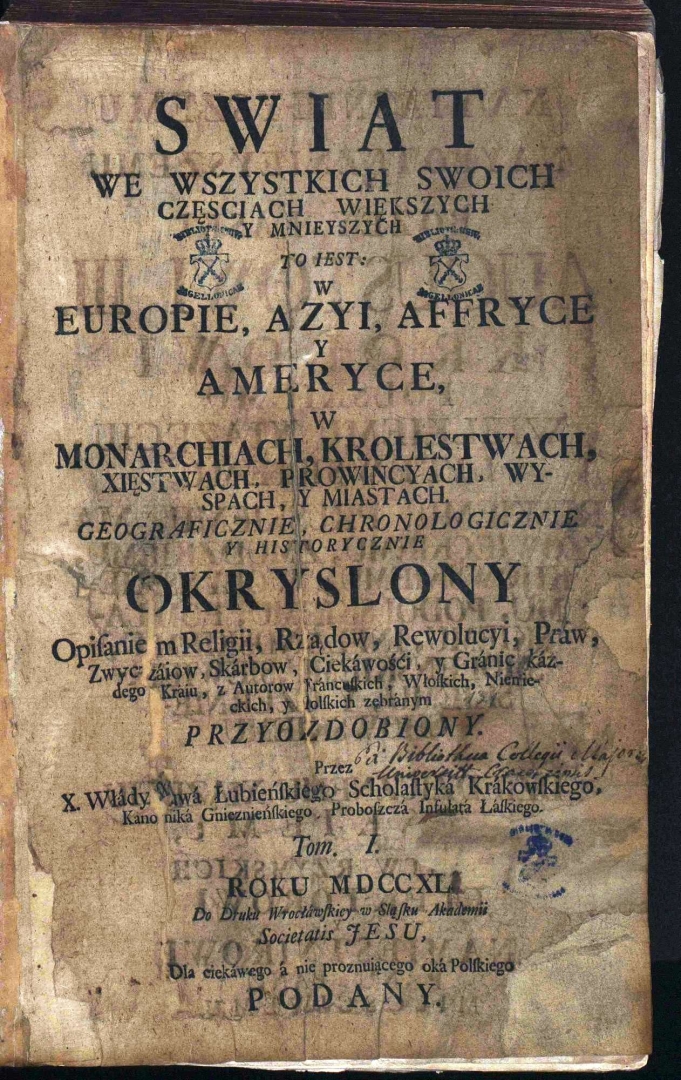 SWIAT
WE WSZYSTKICH SWOICH
CZĘSCIACH WIĘKSZYCH
Y MNIEYSZYCH
TO IEST:
W
EUROPIE, AZYI, AFFRYCE
Y
AMERYCE,
W
MONARCHIACH, KROLESTWACH,
XIĘSTWACH, PROWINCYACH, WY-
SPACH, Y MIASTACH.
GEOGRAFICZNIE, CHRONOLOGICZNIE
Y HISTORYCZNIE
OKRYSLONY
Opiſaniem Religii, Rządow, Rewolucyi, Praw,
Zwyczáiow, Skárbow, Ciekáwośći, y Gránic káż-
dego Kraiu, z Autorow Francuſkich, Włoſkich, Niemie-
ckich, y Polſkich zebránym
PRZYOZDOBIONY.
Przez
Bibliotheca Collegii Majoris
X. Włády ława Łubieńſkiego Scholaſtyká Krákowſkiego,
Kanoniká Gnieznieńſkiego, Proboſzczá Infułatá Łáſkiego.
Tom. I.
ROKU MDCCXL
Do Druku Wrocłáwſkiey w Sląſku Akademii
Societatis JESU,
Dla ciekáwego á nie proznuiącego oká Polſkiego
PODANY.